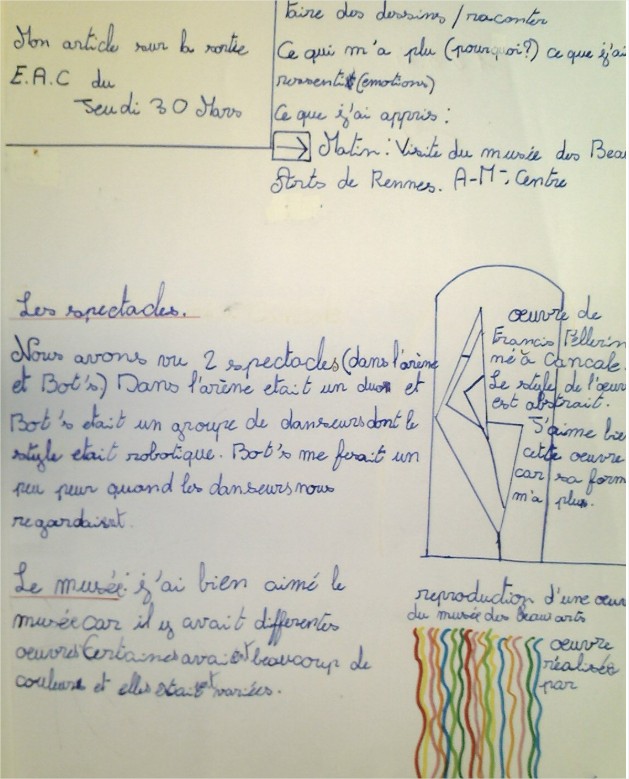 Mon article sur la sortie
E.A.C du
Jeudi 30 Mars
faire des dessins / raconter
Ce qui m'a plu (pourquoi?) ce que j'ai
ressenti (emotions)
Ce que j'ai appris :
→ Matin : Visite du musée des Beau
Arts de Rennes. A-M : Centre
Les spectacles.
Nous avons vu 2 spectacles (dans l'arène
et Bot's) Dans l'arène etait un duo et
Bot's etait un groupe de danseurs dont le
style etait robotique. Bot's me ferait un
peu peur quand les danseurs nous
regardaient.
œuvre de
Francis Pellerin
né à Cancale.
Le style de l'œuv
est abstrait.
J'aime bie
cette œuvre
car sa form
m'a plu.
Le musée: j'ai bien aimé le
musée car il y avait differentes
œuvres Certaines avaient beaucoup de
couleurs et elles etaient variées.
reproduction d'une œuv
du musée des beaux arts
œuvre
réalisée
par